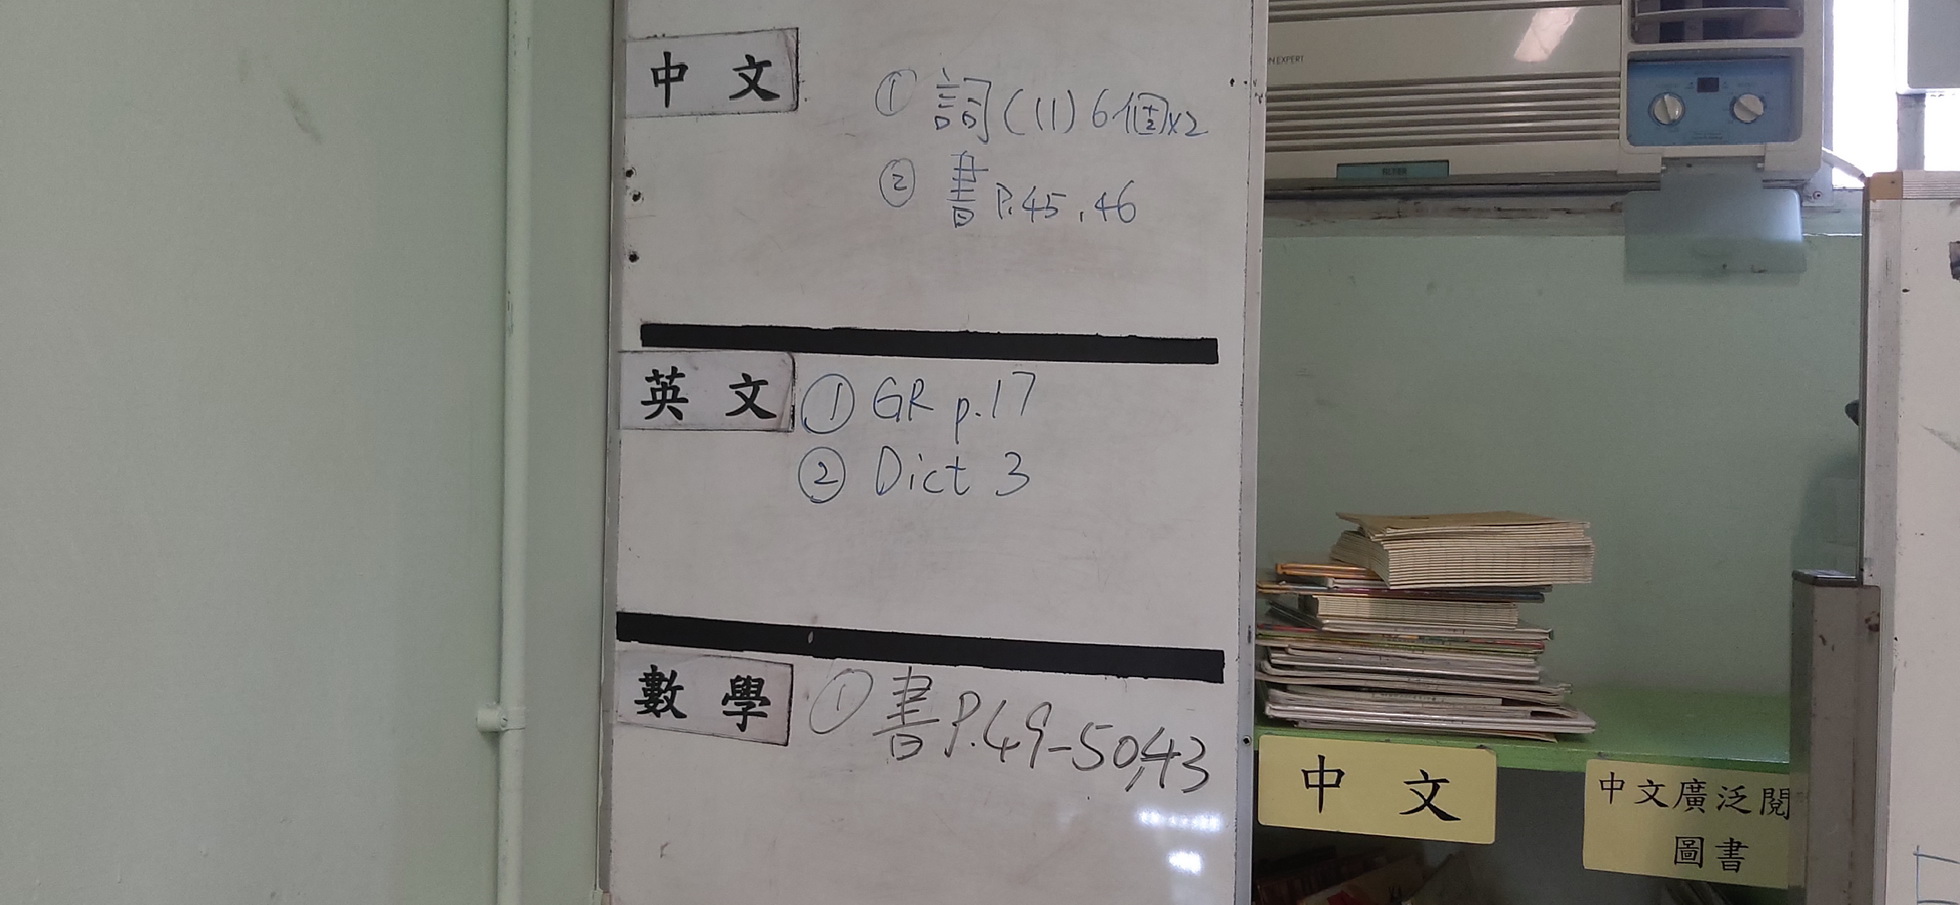 中文
① 詞(11)6個x2
② 書 P.45,46
英文
① GR p.17
② Dict 3
數學
① 書P.49-50,43
N EXPERT
中文
中文廣泛閱
圖書